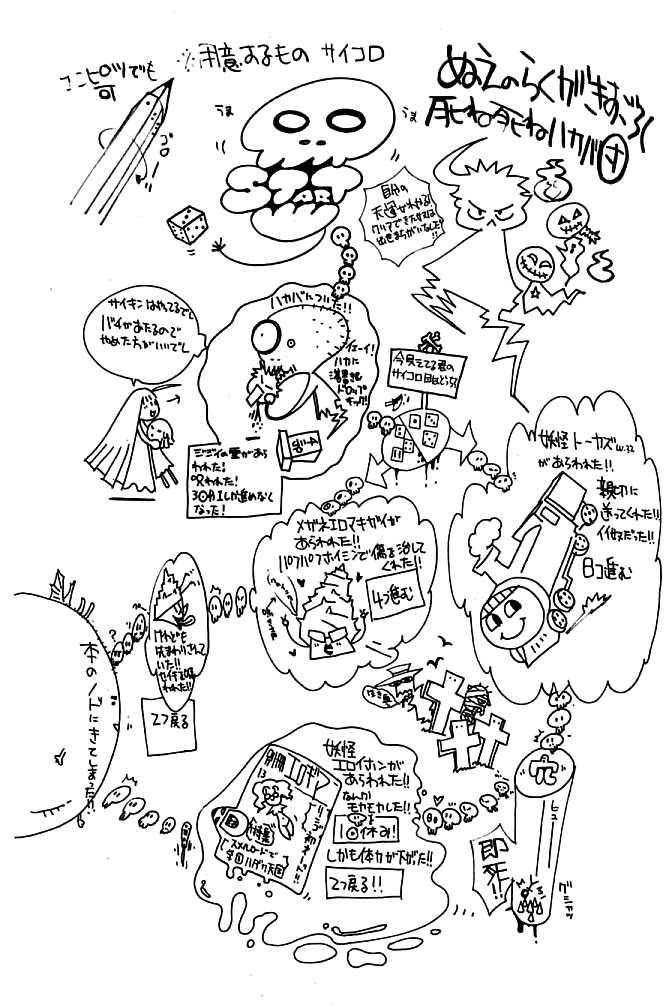 ぬえのらくがきすごろく
死ね死ねハカバ村
※用意するもの サイコロ
エンピツでも
可
コロ
うま
うま
START
自分の
天運がわかる!
クリアできた方は
出世まちがいなしだ!!
ハカバについた!!
イェーイ!
ハカに
ドロップ
キック!
サイキンはやってるでし
バチがあたるので
やめた方がいいでし
ジジイの霊があら
われた!
呪われた!
3回1しか進めなく
なった!
今見てる君の
サイコロの目はどっち?
妖怪トーカズ
があらわれた!!
親切に
送ってくれた!!
イイ奴だった!!
8コ進む
メガネエロマキガイが
あらわれた!!
パフパフホイミンで傷を治して
くれた!!
4つ進む
けれども
先まわりされて
いた!!
2つ戻る
本のノドにきてしまった!!
妖怪
エロイホンが
あらわれた!!
なんか
モヤモヤした!!
1回休み!
しかも体力が下がった!!
2つ戻る!!
別冊エロギン
13
特集
スメルロードで
学園ハダカ天国
ヒュー
即死!!
グサッ